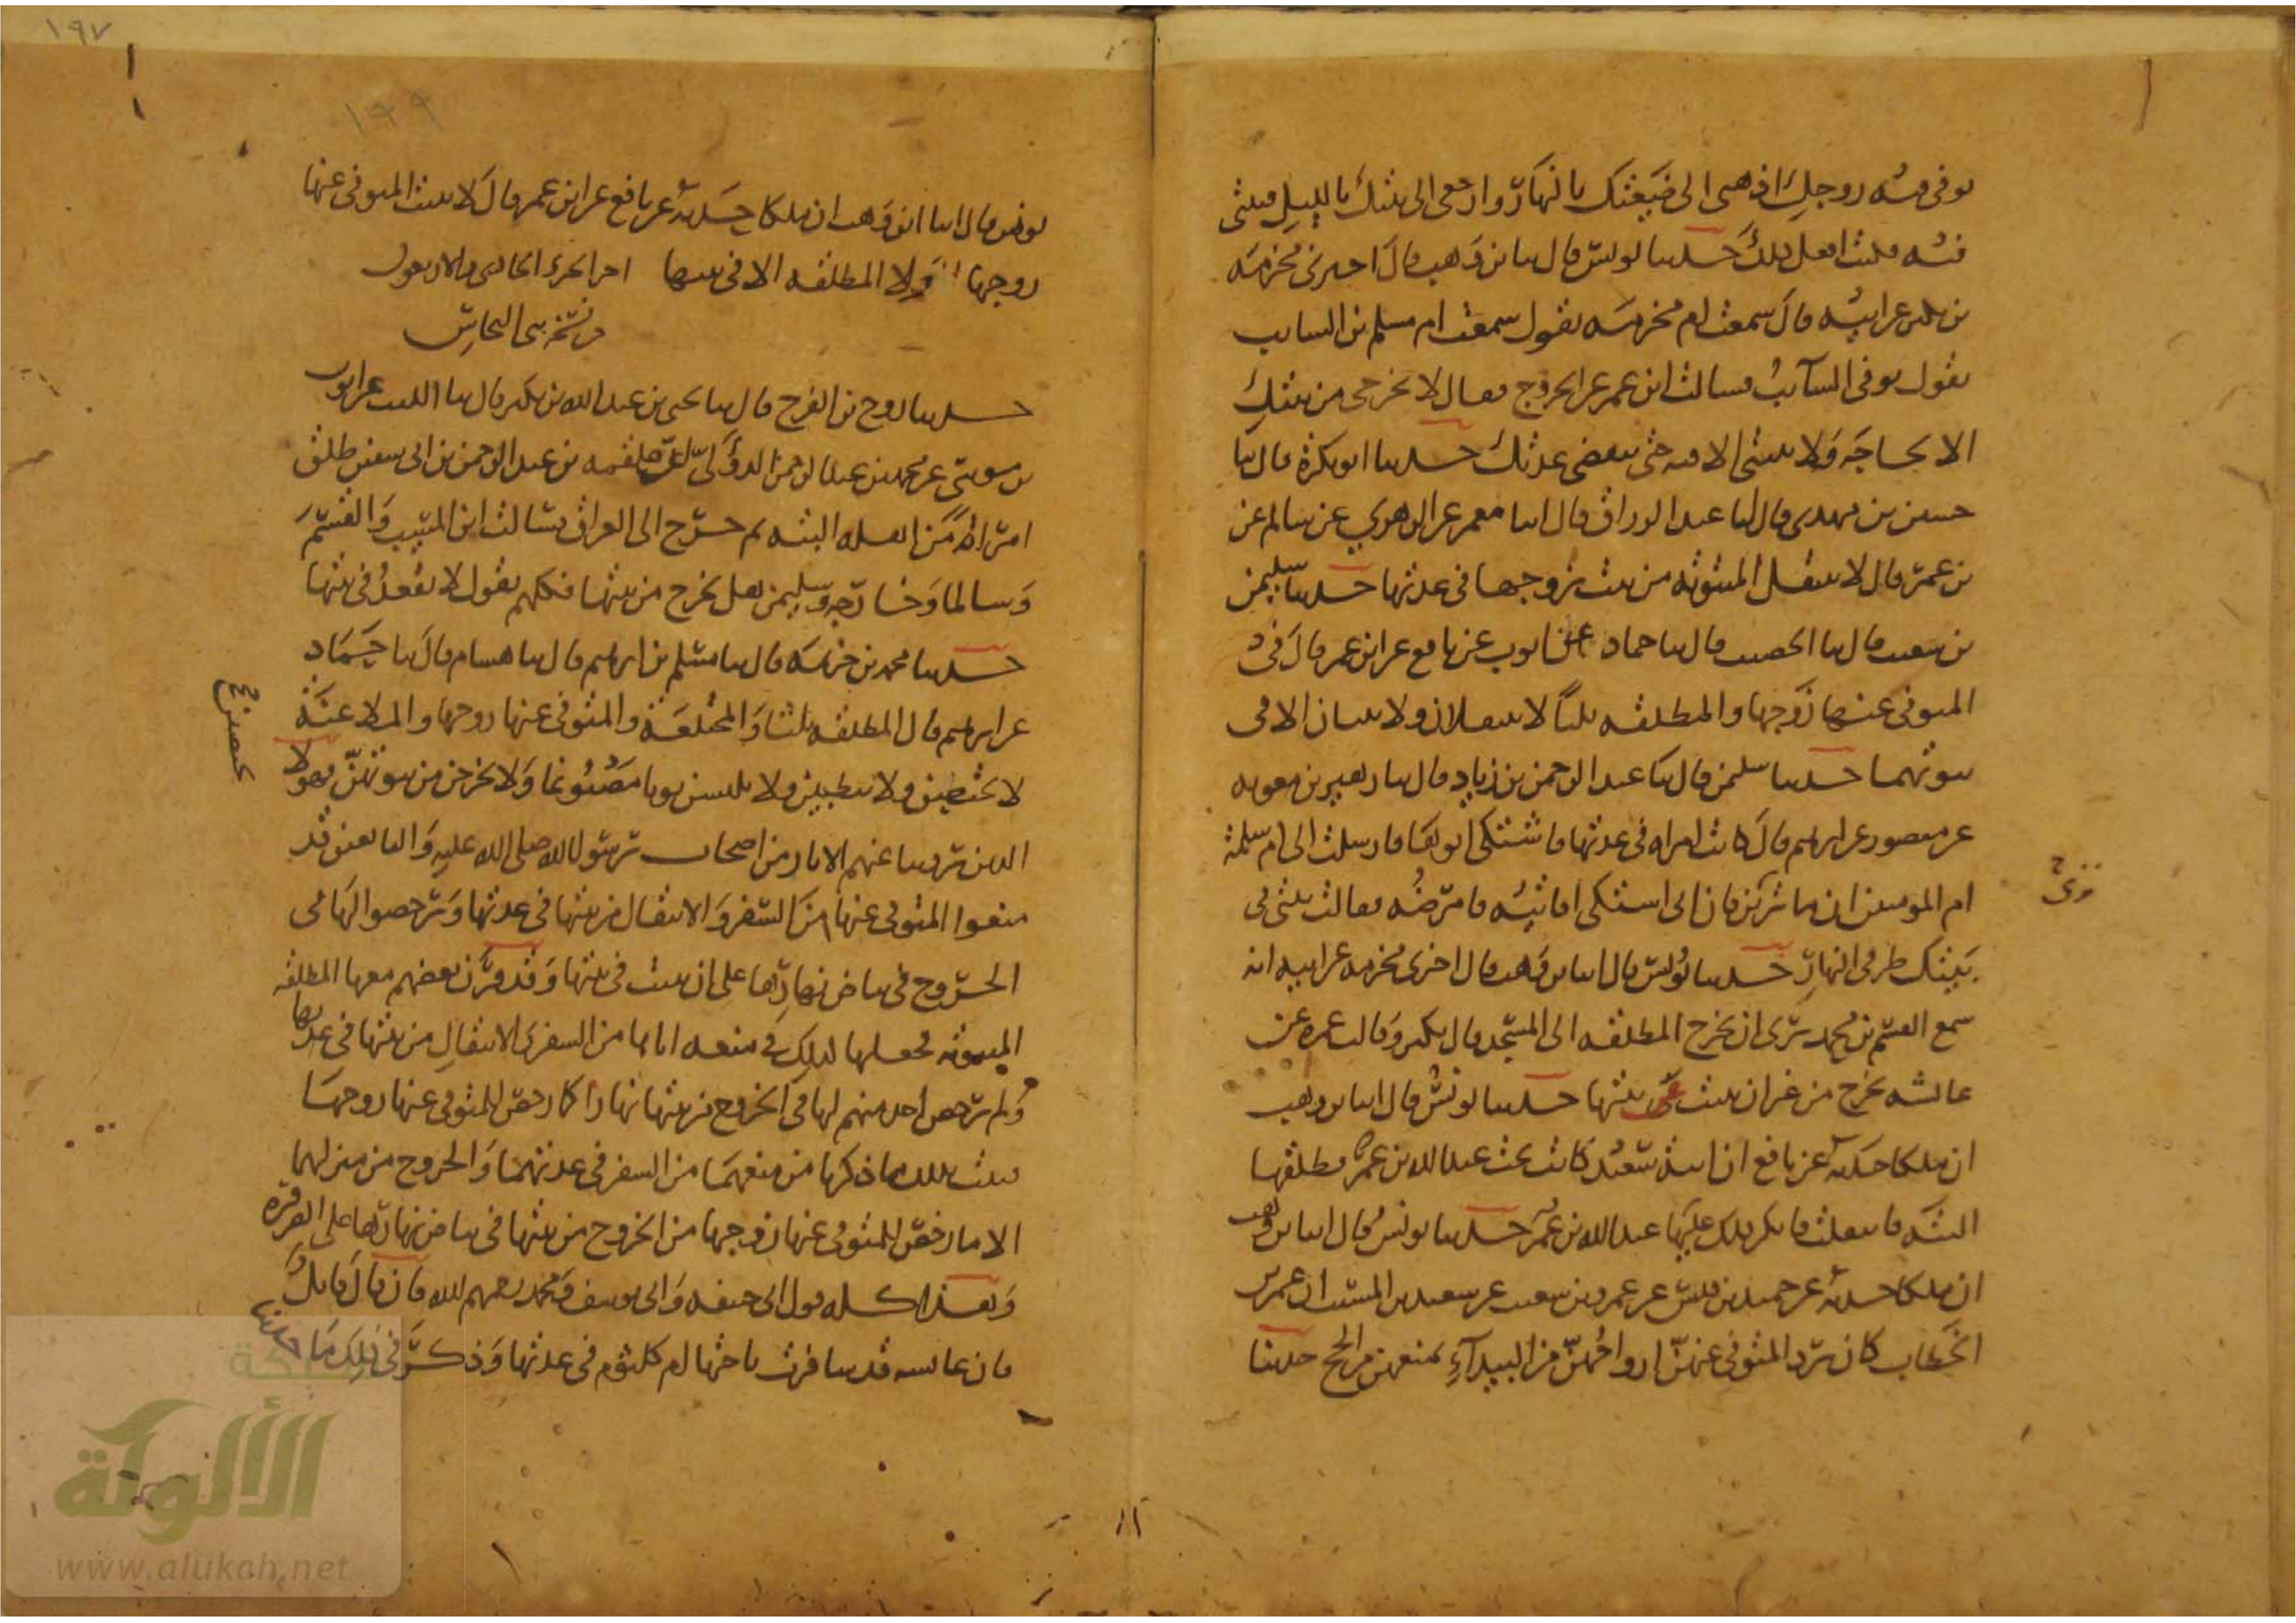 توفى فيه زوجك اذهبى الى ضيعتك بالنهار وارجعى الى بيتك بالليل فبيتى
فيه فكنت افعل ذلك حدثنا يونس قال ثنا بن وهب قال اخبرنى مخرمه
بن بكير عن ابيه قال سمعت ام مخرمه تقول سمعت ام مسلم بن السايب
تقول توفى السآيب فسالت ابن عمر عن الخروج فقال لا تخرجى من بيتك
الا لحاجه ولا تبيتى الا فيه حتى تنقضى عدتك حدثنا ابو بكرة قال ثنا
حسين بن مهدى قال ثنا عبد الرزاق قال انا معمر عن الزهري عن سالم عن
بن عمر قال لا تنتقل المبتوته من بيت زوجها فى عدتها حدثنا سليمن
بن شعيب قال ثنا الخصيب قال ثنا حماد عن ايوب عن نافع عن ابن عمر قال فى
المتوفى عنها زوجها والمطلقه ثلثا لا تنتقلان ولا تبيتان الا فى
بيوتهما حدثنا سليمن قال ثنا عبد الرحمن بن زياد قال ثنا زهير بن معويه
عن منصور عن ابرهيم قال كانت امراه فى عدتها فاشتكى ابوها فارسلت الى ام سلمة
ام المومنين ان ما ترين فان ابى اشتكى افاتيه فامرضه فقالت بيتى فى
بيتك طرفى النهار حدثنا يونس قال انا بن وهب قال اخبرنى مخرمه عن ابيه انه
سمع القسم بن محمد يرى ان تخرج المطلقه الى المسجد قال بكير وقالت عمره عن
عائشه تخرج من غير ان تبيت عن بيتها حدثنا يونس قال انا بن وهب
ان ملكا حدثه عن نافع ان ابنة سعيد كانت تحت عبد الله بن عمر فطلقها
البته فانتقلت فانكر ذلك عليها عبد الله بن عمر حدثنا يونس قال انا بن وهب
ان ملكا حدثه عن حميد بن قيس عن عمرو بن شعيب عن سعيد بن المسيب ان عمر بن
الخطاب كان يرد المتوفى عنهن ازواجهن من البيدآء يمنعهن من الحج حدثنا
ترى
١٩٧
يونس قال انا ابن وهب ان ملكا حدثه عن نافع عن ابن عمر قال لا تبيت المتوفى عنها
زوجها ولا المطلقه الا فى بيتها اخر الجزء الحادى والاربعون
حدثنا روح بن الفرج قال ثنا يحيى بن عبد الله بن بكير قال ثنا الليث عن ايوب
بن موسى عن محمد بن عبد الرحمن الدؤلى عن علقمه بن عبد الرحمن بن ابى سفين طلق
امراة من اهله البته ثم خرج الى العراق فسالت ابن المسيب والقسم
وسالما وخارجه وسليمن هل تخرج من بيتها فكلهم يقول لا تقعد فى بيتها
حدثنا محمد بن خزيمه قال ثنا مسلم بن ابرهيم قال ثنا هشام قال ثنا حماد
عن ابرهيم قال المطلقه ثلثا والمختلعة والمتوفى عنها زوجها والملاعنة
لا تختضبن ولا تتطيبن ولا تلبسن ثوبا مصبوغا ولا تخرجن من بيوتهن فهولا
الذين روينا عنهم الاثار من اصحاب رسول الله صلى الله عليه والتابعين قد
منعوا المتوفى عنها من السفر والانتقال من بيتها فى عدتها ورخصوا لها فى
الخروج فى بياض نهارها على ان تبيت فى بيتها وقد قرن بعضهم معها المطلقه
المبتوته فجعلها كذلك فى منعه اياها من السفر والانتقال من بيتها فى عدتها
ولم يرخص احد منهم لها فى الخروج من بيتها نهارا كما رخص للمتوفى عنها زوجها
فثبت بذلك ما ذكرنا من منعهما من السفر فى عدتهما والخروج من منزلهما
الا ما رخص للمتوفى عنها زوجها من الخروج من بيتها فى بياض نهارها على الضرورة
وهذا كله قول ابى حنيفه وابى يوسف ومحمد رحمهم الله فان قال قائل
فان عائشه قد سافرت باختها ام كلثوم فى عدتها وذكر فى ذلك ما حدثنا
الألوكة
www.alukah.net